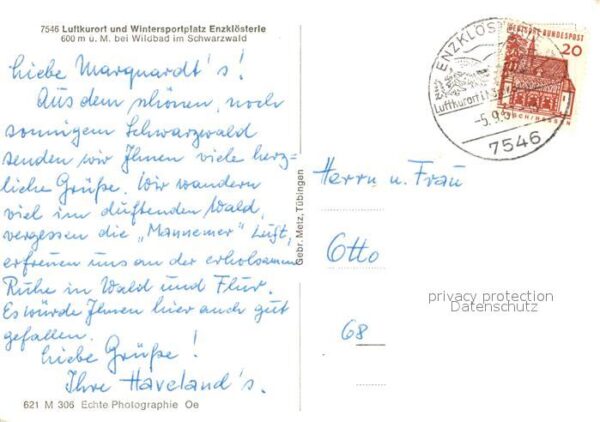 7546 Luftkurort und Wintersportplatz Enzklösterle
600 m ü. M. bei Wildbad im Schwarzwald
Liebe Marquardt's!
Aus dem schönen, noch
sonnigem Schwarzwald
senden wir Ihnen viele herz=
liche Grüße. Wir wandern
viel im duftenden Wald,
vergessen die „Mannemer" Luft,
erfreuen uns an der erholsamen
Ruhe in Wald und Flur.
Es würde Ihnen hier auch gut
gefallen.
Liebe Grüße!
Ihre Haveland's.
621 M 306 Echte Photographie Oe
Gebr. Metz, Tübingen
ENZKLÖS
Luftkurort i.
-5.9.
7546
DEUTSCHE BUNDESPOST
20
LORSCH/HESSEN
Herrn u. Frau
Otto
68
privacy protection
Datenschutz